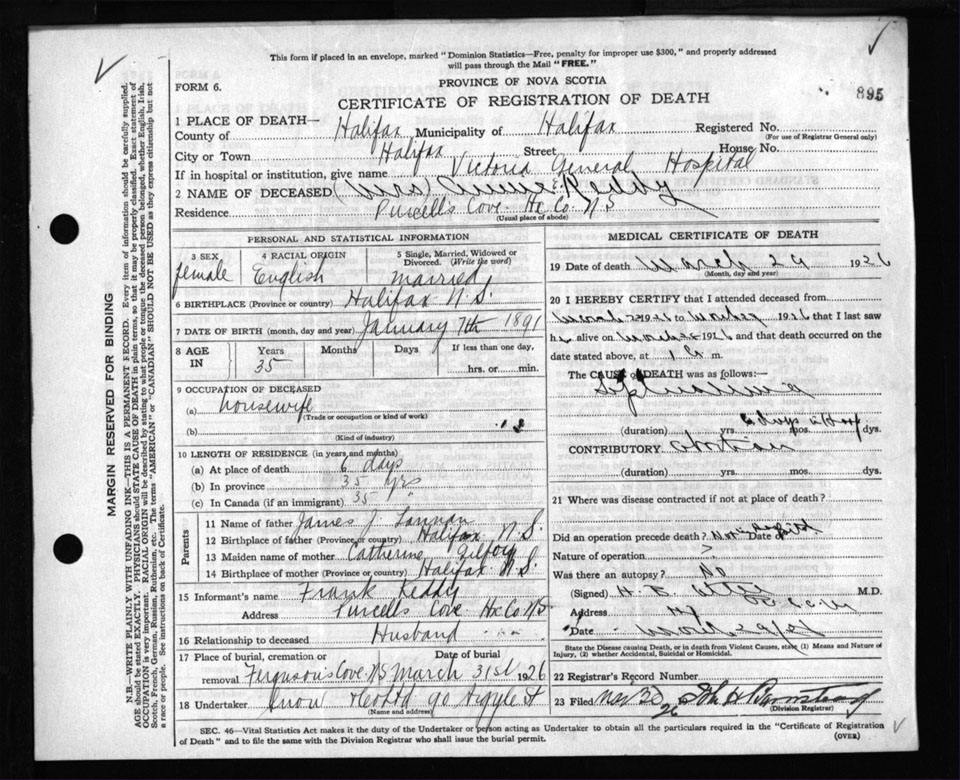 This form if placed in an envelope, marked "Dominion Statistics—Free, penalty for improper use $300," and properly addressed
will pass through the Mail "FREE."
FORM 6.
PROVINCE OF NOVA SCOTIA
895
CERTIFICATE OF REGISTRATION OF DEATH
1 PLACE OF DEATH—
County of Halifax Municipality of Halifax Registered No.
(For use of Registrar General only)
City or Town Halifax Street House No.
If in hospital or institution, give name Victoria General Hospital
2 NAME OF DECEASED (Mrs) Annie Reddy
Residence Purcell's Cove Hx Co. NS
(Usual place of abode)
PERSONAL AND STATISTICAL INFORMATION
3 SEX
female
4 RACIAL ORIGIN
English
5 Single, Married, Widowed or
Divorced. (Write the word)
Married
6 BIRTHPLACE (Province or country) Halifax N.S.
7 DATE OF BIRTH (month, day and year) January 7th 1891
8 AGE
IN
Years
35
Months
Days
If less than one day,
hrs. or min.
9 OCCUPATION OF DECEASED
(a) housewife
(Trade or occupation or kind of work)
(b)
(Kind of industry)
10 LENGTH OF RESIDENCE (in years and months)
(a) At place of death 6 days
(b) In province 35 yrs
(c) In Canada (if an immigrant) 35 "
Parents
11 Name of father James J. Lannan
12 Birthplace of father (Province or country) Halifax N.S.
13 Maiden name of mother Catherine Gilfoy
14 Birthplace of mother (Province or country) Halifax N.S.
15 Informant's name Frank Reddy
Address Purcells Cove Hx Co. NS
16 Relationship to deceased Husband
17 Place of burial, cremation or
removal Ferguson's Cove. NS
Date of burial
March 31st 1926
18 Undertaker Snow & Co Ltd 90 Argyle St
(Name and address)
MEDICAL CERTIFICATE OF DEATH
19 Date of death March 29 1926
(Month, day and year)
20 I HEREBY CERTIFY that I attended deceased from
1926 to 1926 that I last saw
h alive on 1926 and that death occurred on the
date stated above, at m.
The CAUSE of DEATH was as follows:—
Septicaemia
(duration) yrs. mos. dys.
CONTRIBUTORY abortion
(duration) yrs. mos. dys.
21 Where was disease contracted if not at place of death?
Did an operation precede death? Date
Nature of operation ?
Was there an autopsy? No
(Signed) M.D.
Address
Date March 29/26
State the Disease causing Death, or in death from Violent Causes, state (1) Means and Nature of
Injury, (2) whether Accidental, Suicidal or Homicidal.
22 Registrar's Record Number
23 Filed 26
(Division Registrar)
SEC. 46—Vital Statistics Act makes it the duty of the Undertaker or person acting as Undertaker to obtain all the particulars required in the "Certificate of Registration
of Death" and to file the same with the Division Registrar who shall issue the burial permit.
(OVER)
MARGIN RESERVED FOR BINDING
N.B.—WRITE PLAINLY WITH UNFADING INK—THIS IS A PERMANENT RECORD. Every item of information should be carefully supplied.
AGE should be stated EXACTLY. PHYSICIANS should STATE CAUSE OF DEATH in plain terms, so that it may be properly classified. Exact statement of
OCCUPATION is very important. RACIAL ORIGIN will be described by stating to what people or tongue the deceased person belonged, whether English, Irish,
Scotch, French, German, Russian, Ruthenian, etc. The terms "AMERICAN" or "CANADIAN" SHOULD NOT BE USED as they express citizenship but not
a race or people. See instructions on back of Certificate.